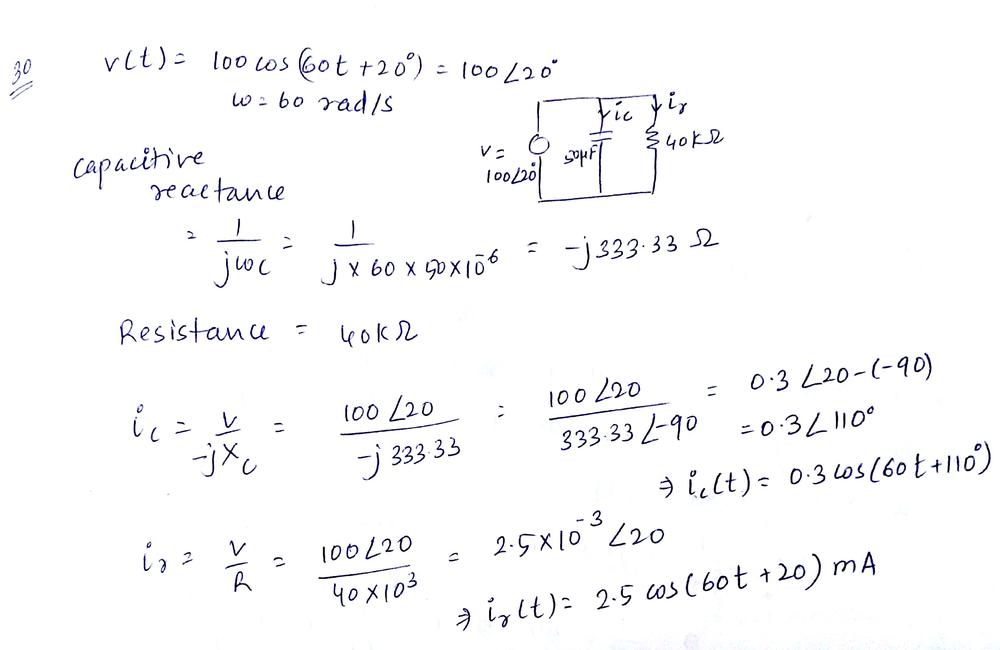 30
v(t) = 100 cos (60t + 20°) = 100∠20°
ω = 60 rad/s
ic
ir
V =
100∠20°
50μF
40kΩ
capacitive
reactance
= 1/jωc = 1/(j × 60 × 50×10^-6) = -j333.33 Ω
Resistance = 40kΩ
ic = V/-jXc = 100∠20/-j333.33 = 100∠20/333.33∠-90 = 0.3 ∠20-(-90)
= 0.3∠110°
⇒ ic(t) = 0.3 cos(60t+110°)
ir = V/R = 100∠20/40×10^3 = 2.5×10^-3 ∠20
⇒ ir(t) = 2.5 cos(60t + 20) mA